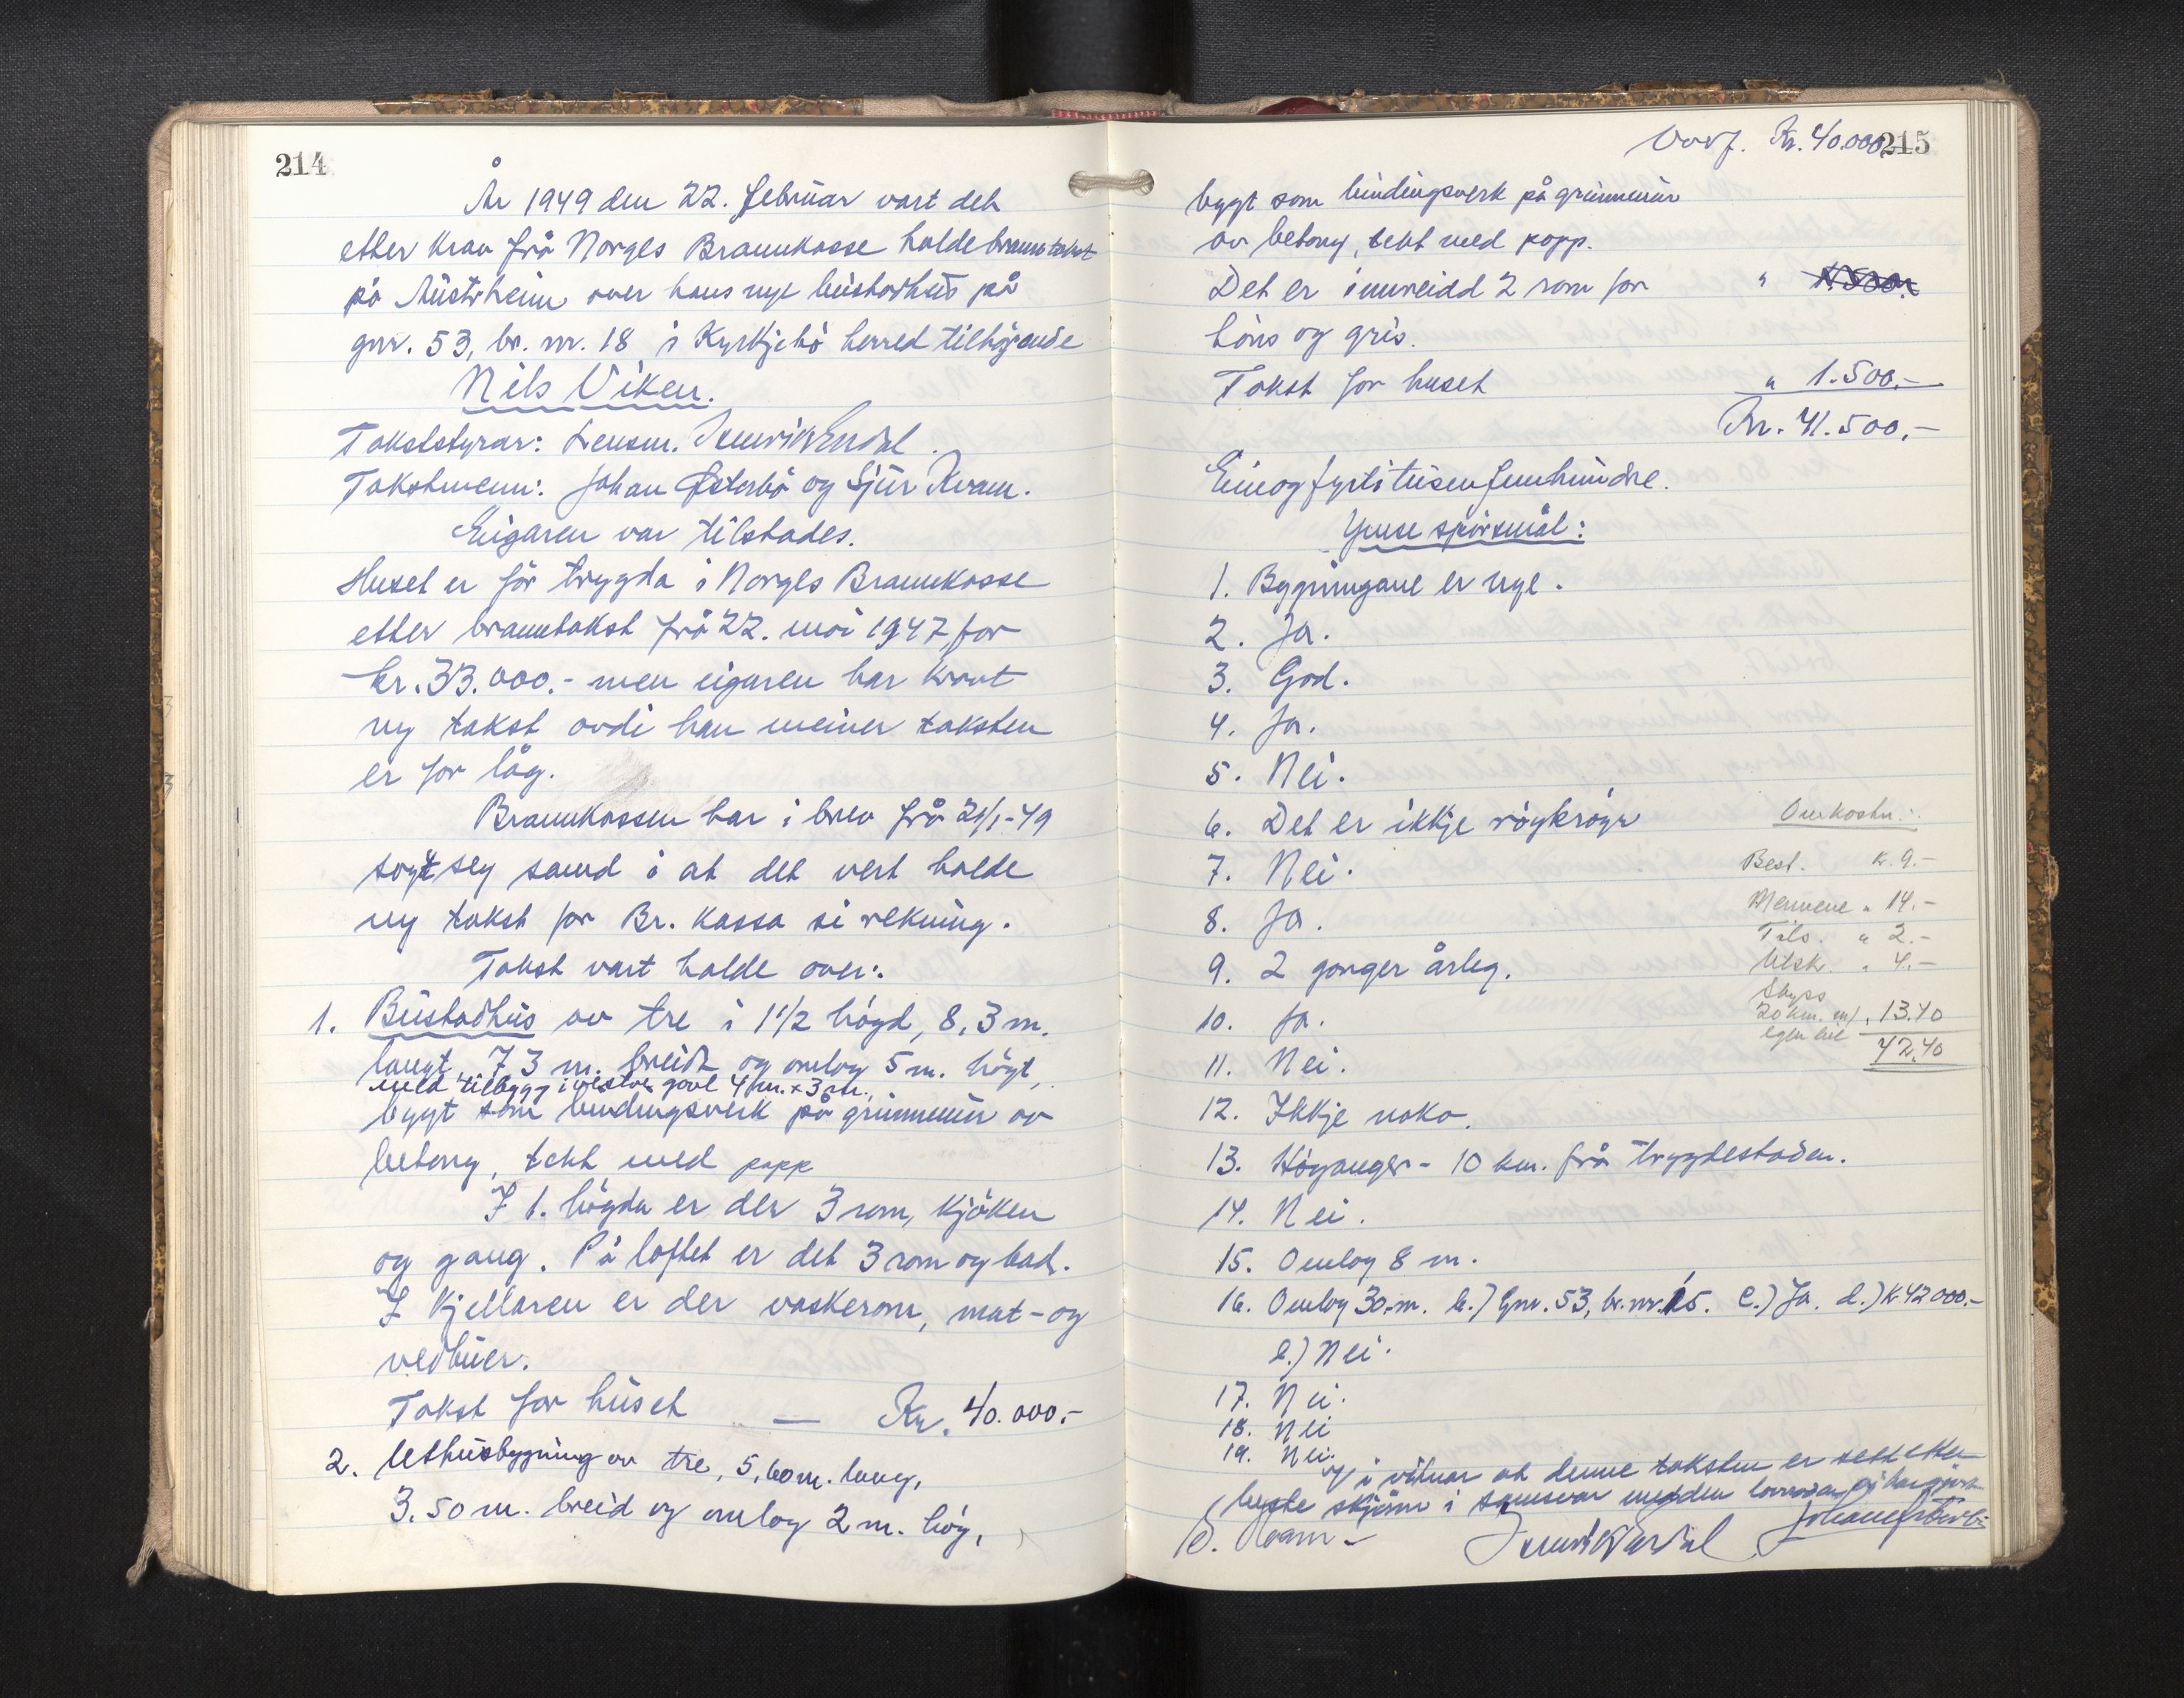 214
År 1949 den 22. februar vart det
etter krav frå Norges Brannkasse halde branntakst
på Austrheim over hans nye bustadhus på
gnr. 53, br. nr. 18 i Kyrkjebö herred tilhøyrande
Nils Viken.
Takststyrar: Lensm.
Takstmenn: Johan Østerbö og Sjur Kvam.
Eigaren var tilstades.
Huset er för trygda i Norges Brannkasse
etter branntakst frå 22. mai 1947 for
kr. 33.000.- men eigaren har kravt
ny takst avdi han meiner taksten
er for låg.
Brannkassen har i brev frå 21/1-49
sagt seg samd i at det vert halde
ny takst for Br. kassa si rekning.
Takst vart halde over:
1. Bustadhus av tre i 1 1/2 högd, 8,3 m.
langt, 7,3 m. breidt og omlag 5 m. högt,
med tilbygg i vestre gavl 4 m. x 3 m.,
bygt som bindingsverk på grunnmur av
betong, tekt med papp
I 1. högda er der 3 rom, kjöken
og gang. På loftet er det 3 rom og bad.
I kjellaren er der vaskerom, mat- og
vedbuer.
Takst for huset — Kr. 40.000,-
2. Uthusbygning av tre, 5,60 m. lang,
3.50 m. breid og omlag 2 m. höy,
Overf. Kr. 40.000,-
215
bygt som bindingsverk på grunnmur
av betong, tekt med papp.
Det er innreidd 2 rom for " 1.500,-
höns og gris.
Takst for huset " 1.500,-
Kr. 41.500,-
Einogfyrtitusenfemhundre.
Ymse spörsmål:
1. Bygningane er nye.
2. Ja.
3. God.
4. Ja.
5. Nei.
6. Det er ikkje röykröyr
7. Nei.
8. Ja.
9. 2 gonger årleg.
10. Ja.
11. Nei.
12. Ikkje noko.
13. Höyanger - 10 km. frå trygdestaden.
14. Nei.
15. Omlag 8 m.
16. Omlag 30 m. b.) Gnr. 53, br. nr. 15. c.) Ja. d.) k 42000.-
e.) Nei.
17. Nei.
18. Nei
19. Nei.
Omkostn.:
Best. kr. 9.-
Mennene " 14.-
Tils. " 2.-
Utskr. " 4.-
Skyss
20 km. m/ " 13.40
egen bil
42.40
Vi vitnar at denne taksten er sett etter
beste skjönn i samsvar med den lovnaden vi har gjeve
S. Kvam -
Johan Østerbö